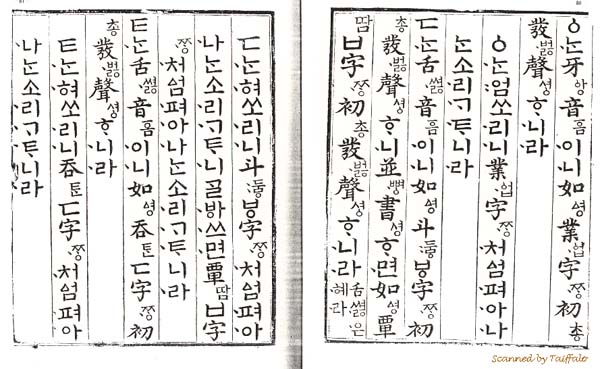 ㆁᄂᆞᆫ牙ᅌᅡᆼ音ᅙᅳᆷ이니如ᅀᅧᆼ業ᅌᅥᆸ字ᄍᆞᆼ初총
發벓聲셩ᄒᆞ니라
ㆁᄂᆞᆫ엄쏘리니業ᅌᅥᆸ字ᄍᆞᆼ처ᅀᅥᆷ펴아나
ᄂᆞᆫ소리ᄀᆞᄐᆞ니라
ㄷᄂᆞᆫ舌쎯音ᅙᅳᆷ이니如ᅀᅧᆼ斗두ᇢㅸ字ᄍᆞᆼ初
총發벓聲셩ᄒᆞ니並뼝書셩ᄒᆞ면如ᅀᅧᆼ覃
땀ㅂ字ᄍᆞᆼ初총發벓聲셩ᄒᆞ니라舌쎯은혀라
ㄷᄂᆞᆫ혀쏘리니斗두ᇢㅸ字ᄍᆞᆼ처ᅀᅥᆷ펴아
나ᄂᆞᆫ소리ᄀᆞᄐᆞ니ᄀᆞᆯᄫᅡ쓰면覃땀ㅂ字
ᄍᆞᆼ처ᅀᅥᆷ펴아나ᄂᆞᆫ소리ᄀᆞᄐᆞ니라
ㅌᄂᆞᆫ舌쎯音ᅙᅳᆷ이니如ᅀᅧᆼ呑ᄐᆞᆫㄷ字ᄍᆞᆼ初
총發벓聲셩ᄒᆞ니라
ㅌᄂᆞᆫ혀쏘리니呑ᄐᆞᆫㄷ字ᄍᆞᆼ처ᅀᅥᆷ펴아
나ᄂᆞᆫ소리ᄀᆞᄐᆞ니라
Scanned by Taiffalo